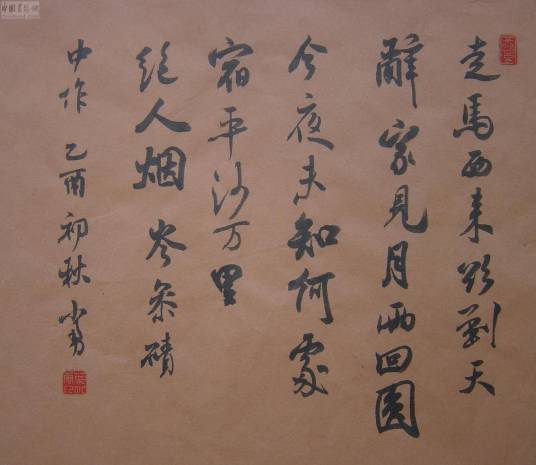 走馬西来欲到天
辭家見月兩回圓
今夜未知何處
宿平沙万里
絕人烟 岑參磧
中作 乙酉初秋小勇